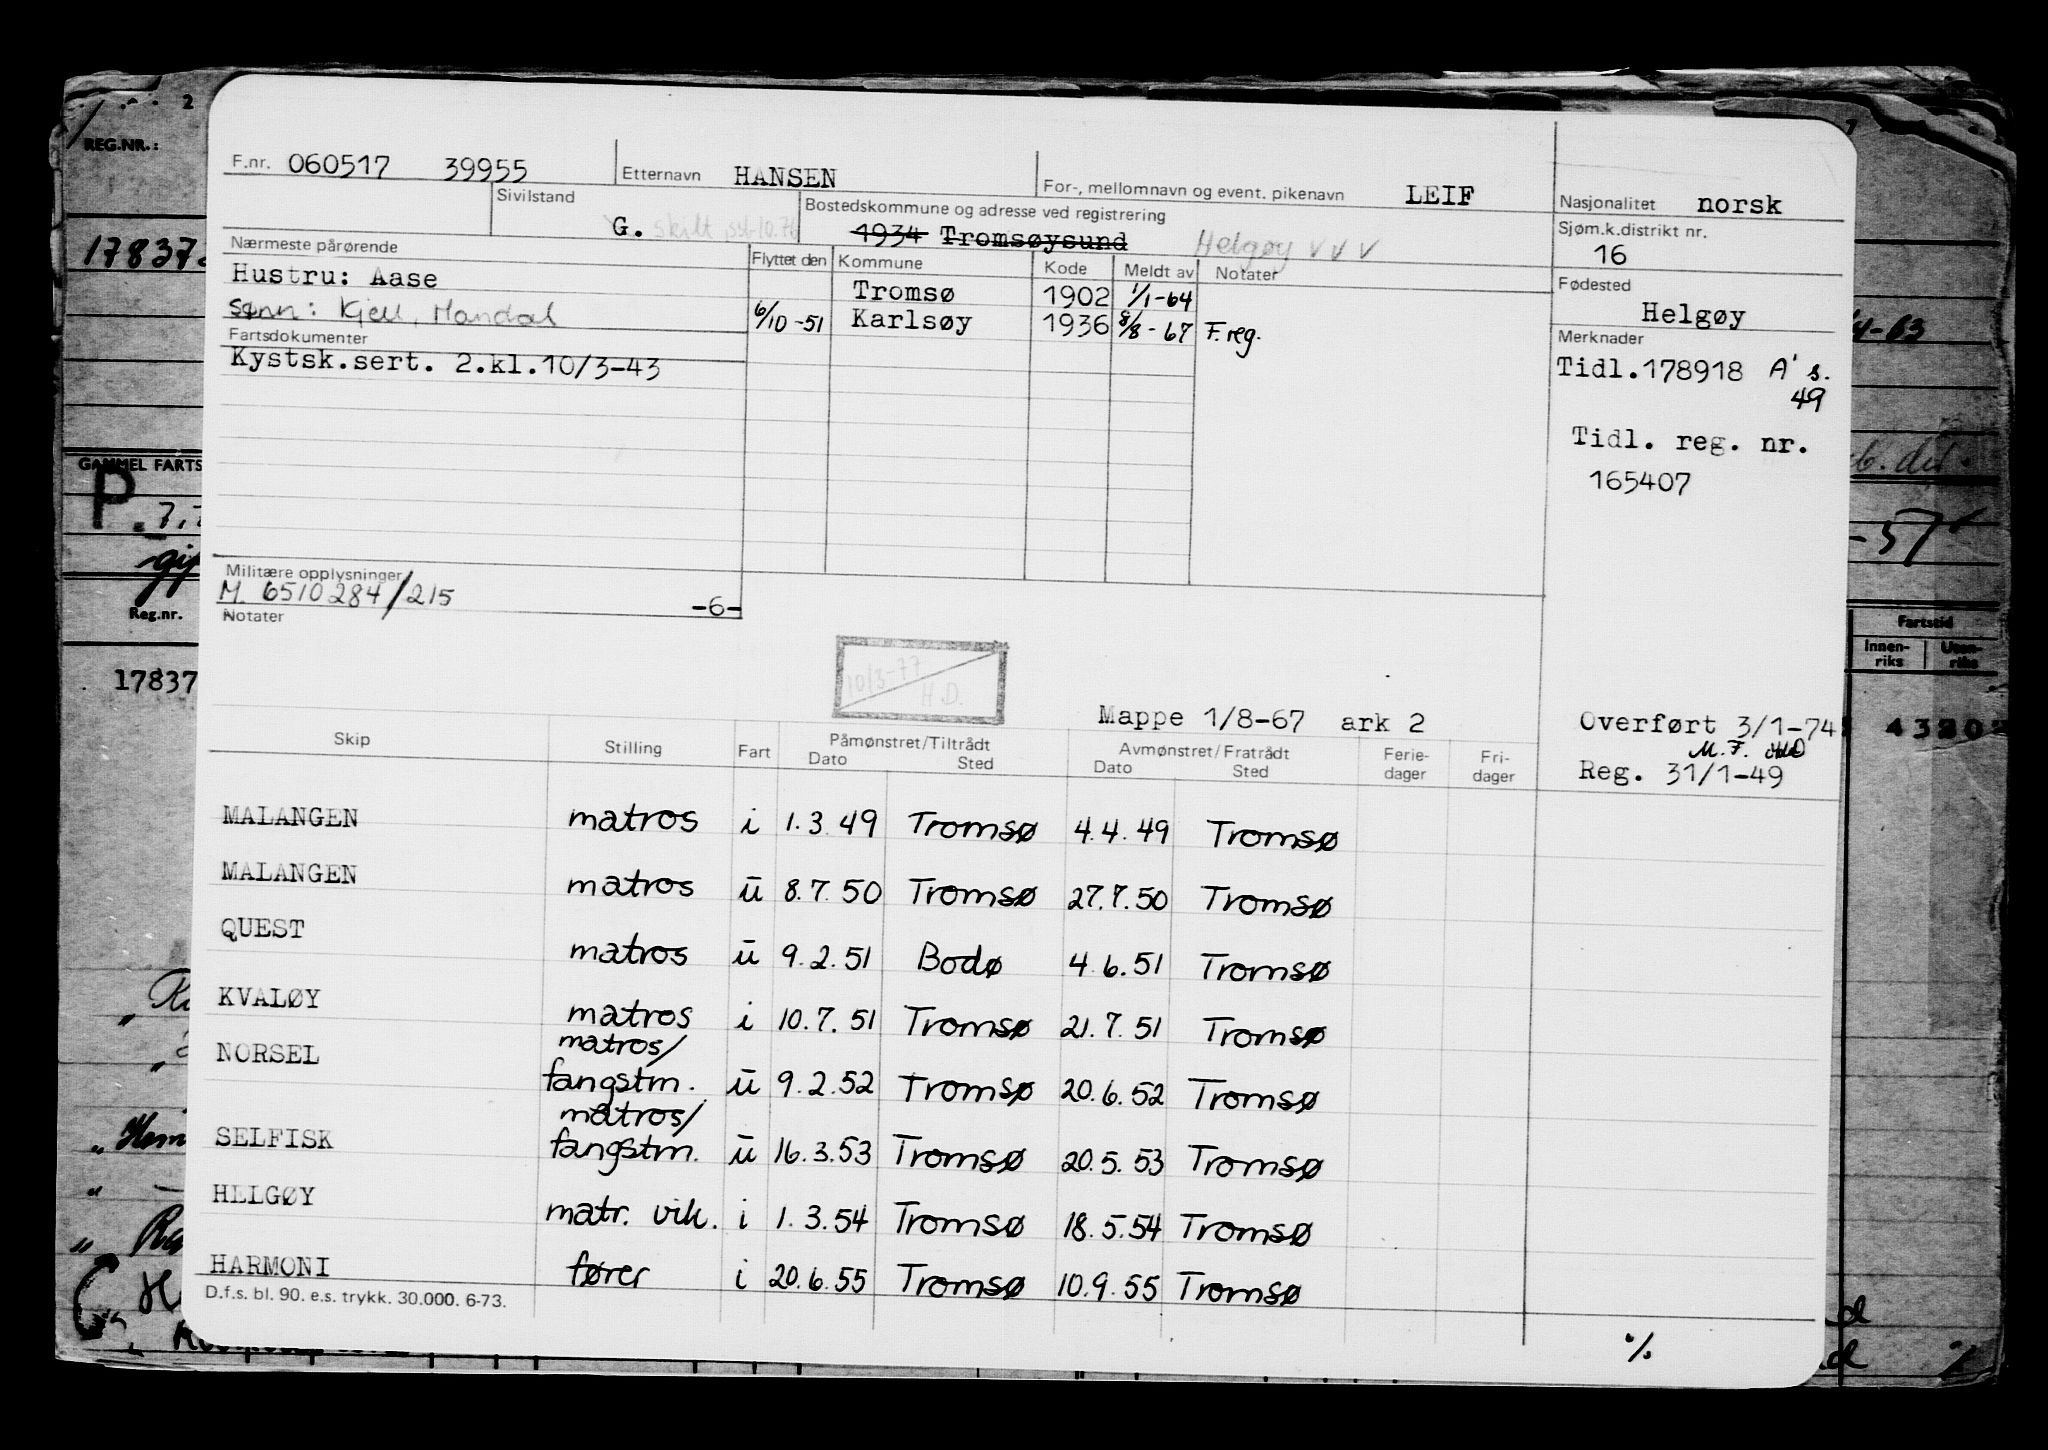 REG.NR.:
F.nr. 060517 39955
Etternavn HANSEN
For-, mellomnavn og event. pikenavn LEIF
Nasjonalitet norsk
Sivilstand
G. skilt
Bostedskommune og adresse ved registrering
1934 Tromsøysund Helgøy V V V
Sjøm.k.distrikt nr.
16
Nærmeste pårørende
Hustru: Aase
Sønn: Kjell, Mandal
Flyttet den Kommune Kode Meldt av Notater
Tromsø 1902 1/1-64
6/10-51 Karlsøy 1936 8/8-67 F.reg.
Fødested
Helgøy
Fartsdokumenter
Kystsk.sert. 2.kl.10/3-43
Merknader
Tidl.178918 A' s.
49
Tidl. reg. nr.
165407
GAMMEL FARTS
P
Militære opplysninger
M. 6510284/215 -6-
Reg.nr.
Notater
Fartstid
Innen-
riks
Uten-
riks
17837
10/3-77
H.D.
Mappe 1/8-67 ark 2
Overført 3/1-74
M.F.
Reg. 31/1-49
Skip Stilling Fart Påmønstret/Tiltrådt Avmønstret/Fratrådt Ferie- Fri-
Dato Sted Dato Sted dager dager
MALANGEN matros i 1.3.49 Tromsø 4.4.49 Tromsø
MALANGEN matros ū 8.7.50 Tromsø 27.7.50 Tromsø
QUEST matros ū 9.2.51 Bodø 4.6.51 Tromsø
KVALØY matros i 10.7.51 Tromsø 21.7.51 Tromsø
matros/
NORSEL fangstm. ū 9.2.52 Tromsø 20.6.52 Tromsø
matros/
SELFISK fangstm. ū 16.3.53 Tromsø 20.5.53 Tromsø
HELGØY matr. vik. i 1.3.54 Tromsø 18.5.54 Tromsø
HARMONI fører i 20.6.55 Tromsø 10.9.55 Tromsø
D.f.s. bl. 90. e.s. trykk. 30.000. 6-73.